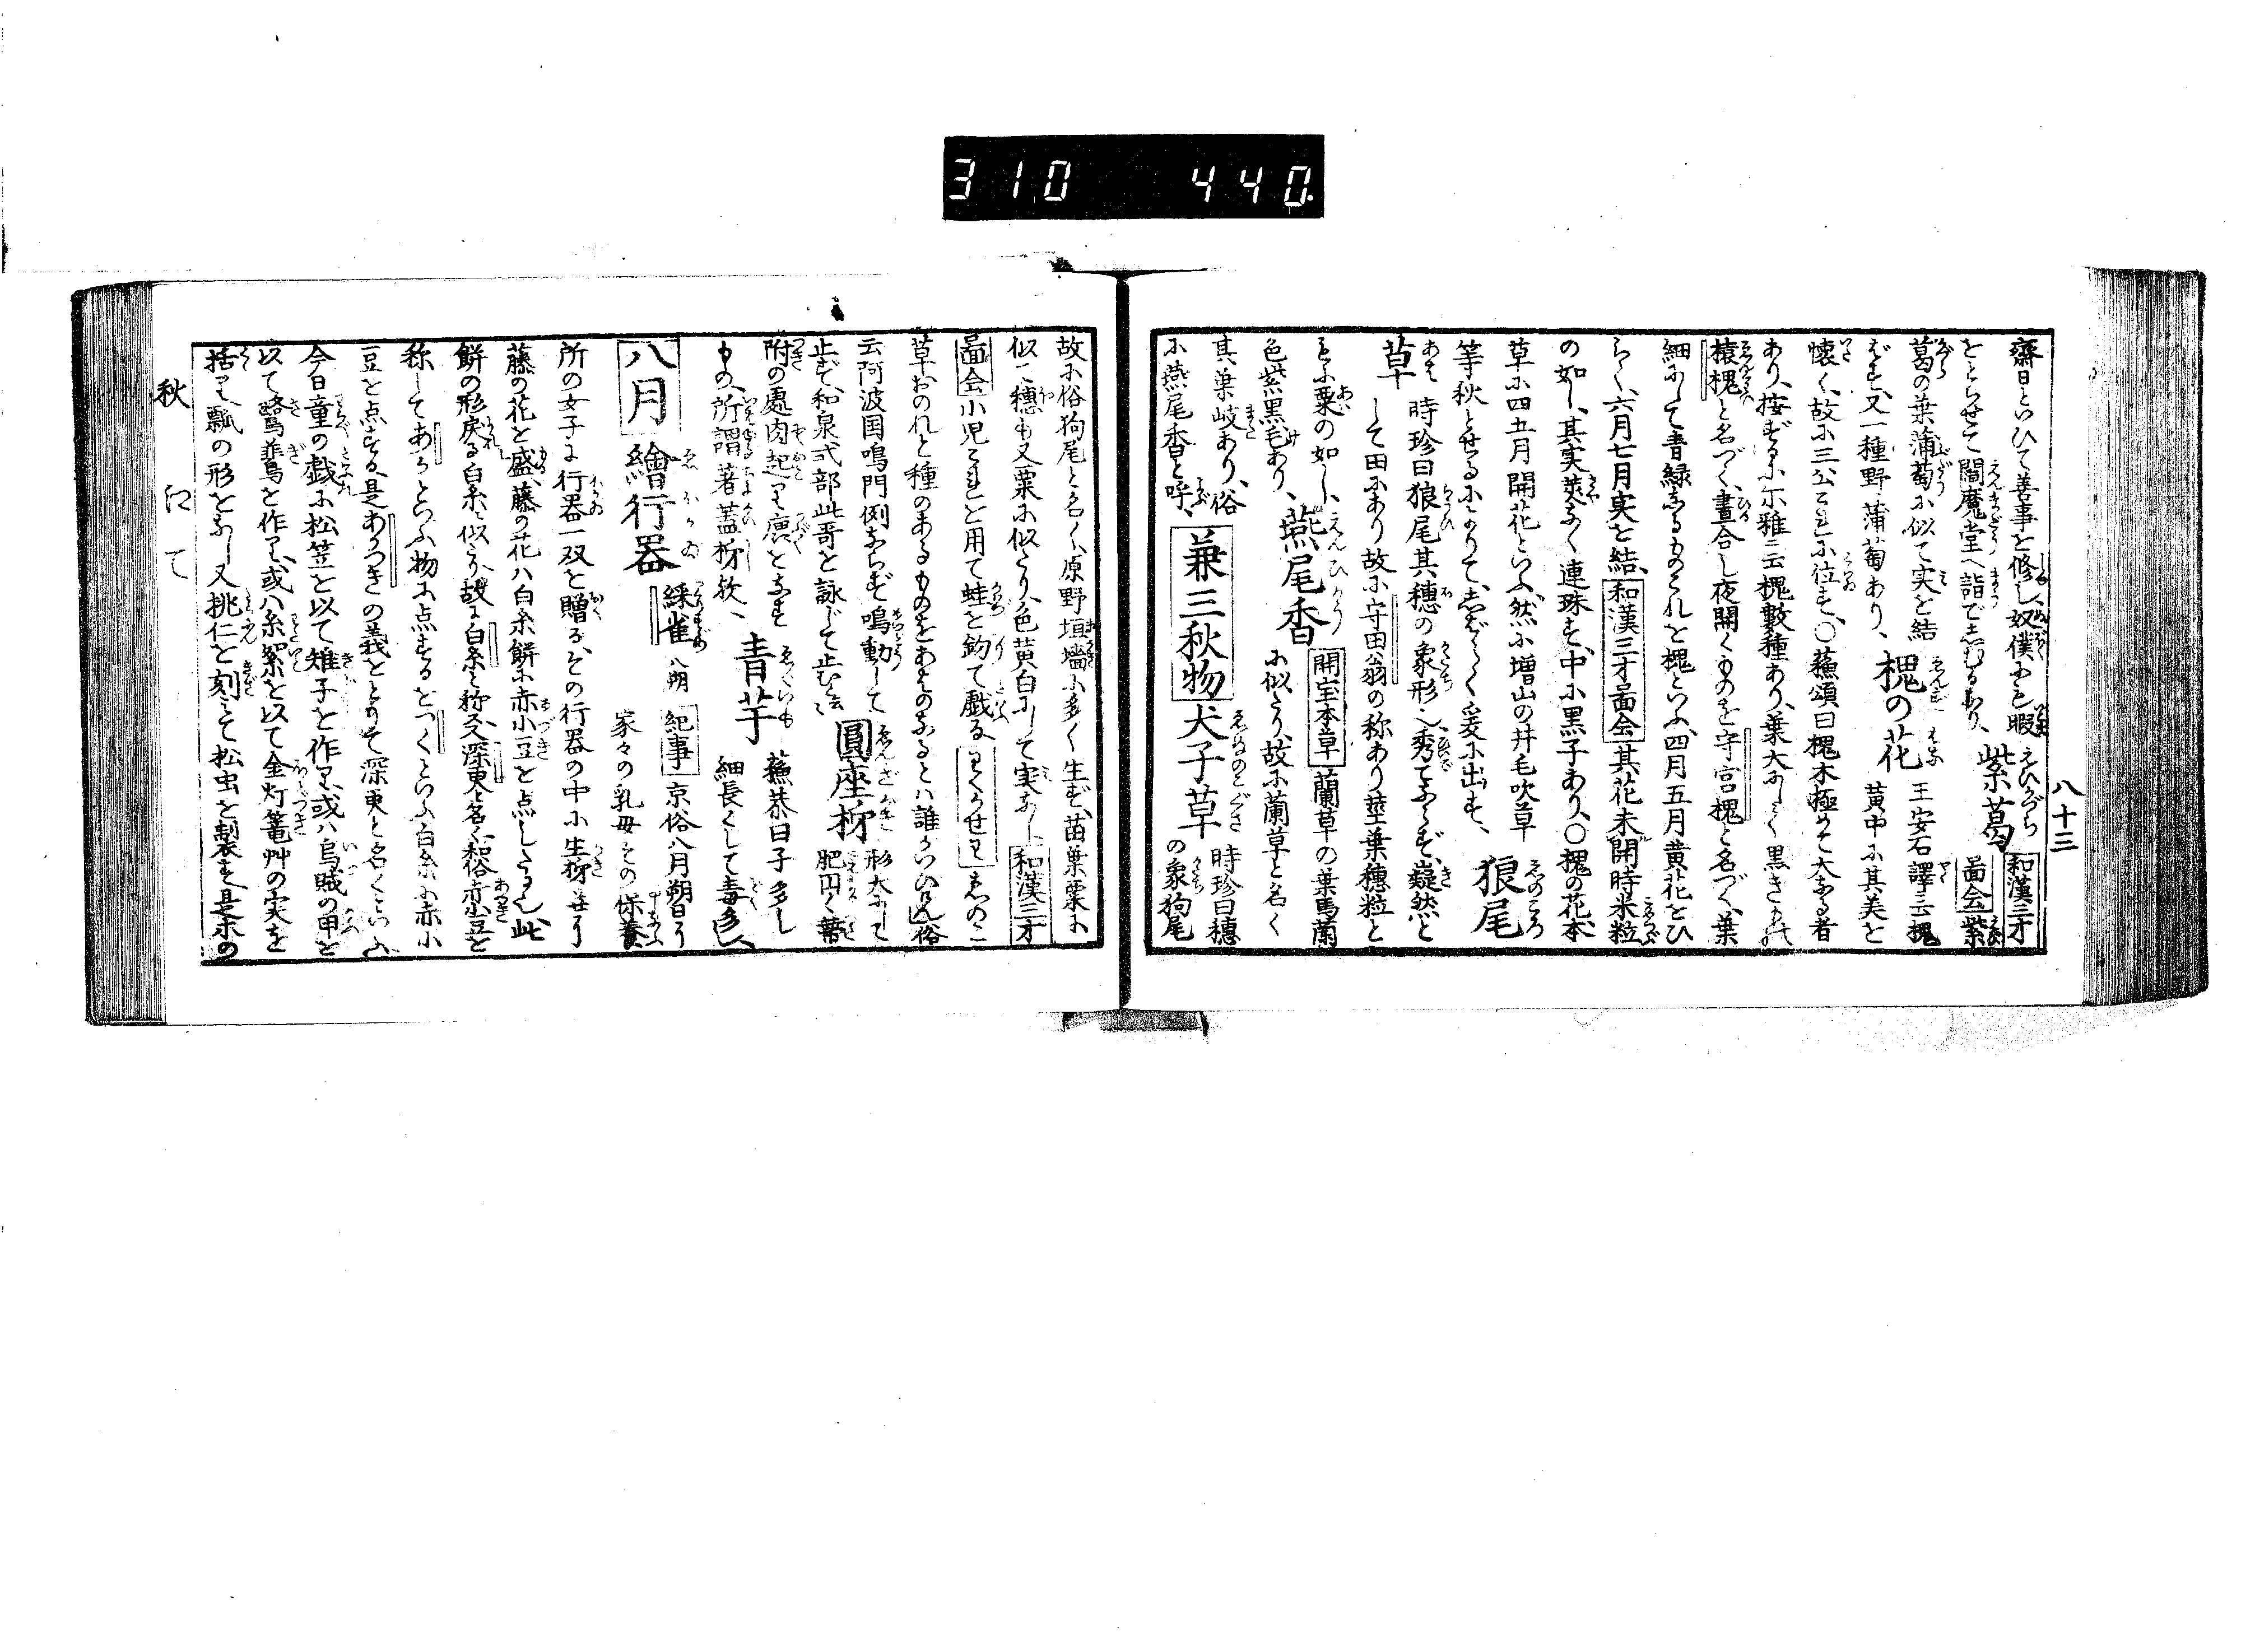 310 440
八十三
齋日といひて善事を修し奴僕にも暇
をとらせて閻魔堂へ詣でしむるなり、紫葛 和漢三才
啚会 紫
葛の葉蒲萄に似て実を結
ばず、又一種野蒲萄あり、槐の花 王安石譯云槐
黄中に其美を
懐く、故に三公これに位す、〇蘓頌曰槐木極めて大なる者
あり、按ずるに尓雅云槐數種あり、葉大にして黒きもの
櫰槐と名づく、晝合し夜開くものを守宮槐と名づく、葉
細にして青緑なるものこれを槐といふ、四月五月黄花をひ
らく、六月七月実を結、和漢三才啚会 其花未開時米粒
の如し、其実莢なく連珠す、中に黒子あり、〇槐の花、本
草に四五月開花といふ、然に増山の井毛吹草
等秋とせるによりて、しばらく爰に出す、狼尾
草 時珍曰狼尾其穗の象形、秀てならず、嶷然と
して田にあり故に守田翁の称あり莖葉穂粒と
もに粟の如し、燕尾香 開宝本草 蘭草の葉馬蘭
に似たり、故に蘭草と名く
色紫黒毛あり、
其葉岐あり、俗
に燕尾香と呼、兼三秋物 犬子草 時珍曰穗
の象狗尾
故に俗狗尾と名く、原野垣墻に多く生ず、苗葉粟に
似て穗も又粟に似たり、色黄白にして実なし 和漢三才
啚会 小児これを用て蛙を釣て戯る ゑのこ
草おのれと種のあるものをあはのなるとハ誰かいひけん俗
云阿波国鳴門例ならず鳴動して 圓座柿 形大にして
肥円く蔕
止ず、和泉式部此哥を詠じて止むと云
附の處肉起て唐となす
もの、所謂著蓋柿欤、青芋 蘓恭曰子多し
細長くして毒多し
八月 繪行器 綵雀 八朔 紀事 京俗八月朔日
家々の乳母その保養
所の女子に行器一双を贈る、その行器の中に生柿并に
藤の花を盛、藤の花ハ白糸餅に赤小豆を点したる也此
餅の形戻る白糸に似たり故に白糸と称、又深更と名く、和俗赤小豆を
称してあかといふ物に点するをつくといふ白糸に赤小
豆を点する是あかつきの義をとりて深更と名くといふ
今日童の戯に松笠を以て雉子を作り、或ハ烏賊の甲を
以て鷺鷥を作り、或ハ糸絮を以て金灯篭艸の実を
括て瓢の形をなし又桃仁を刻て松虫を製す是糸の
秋